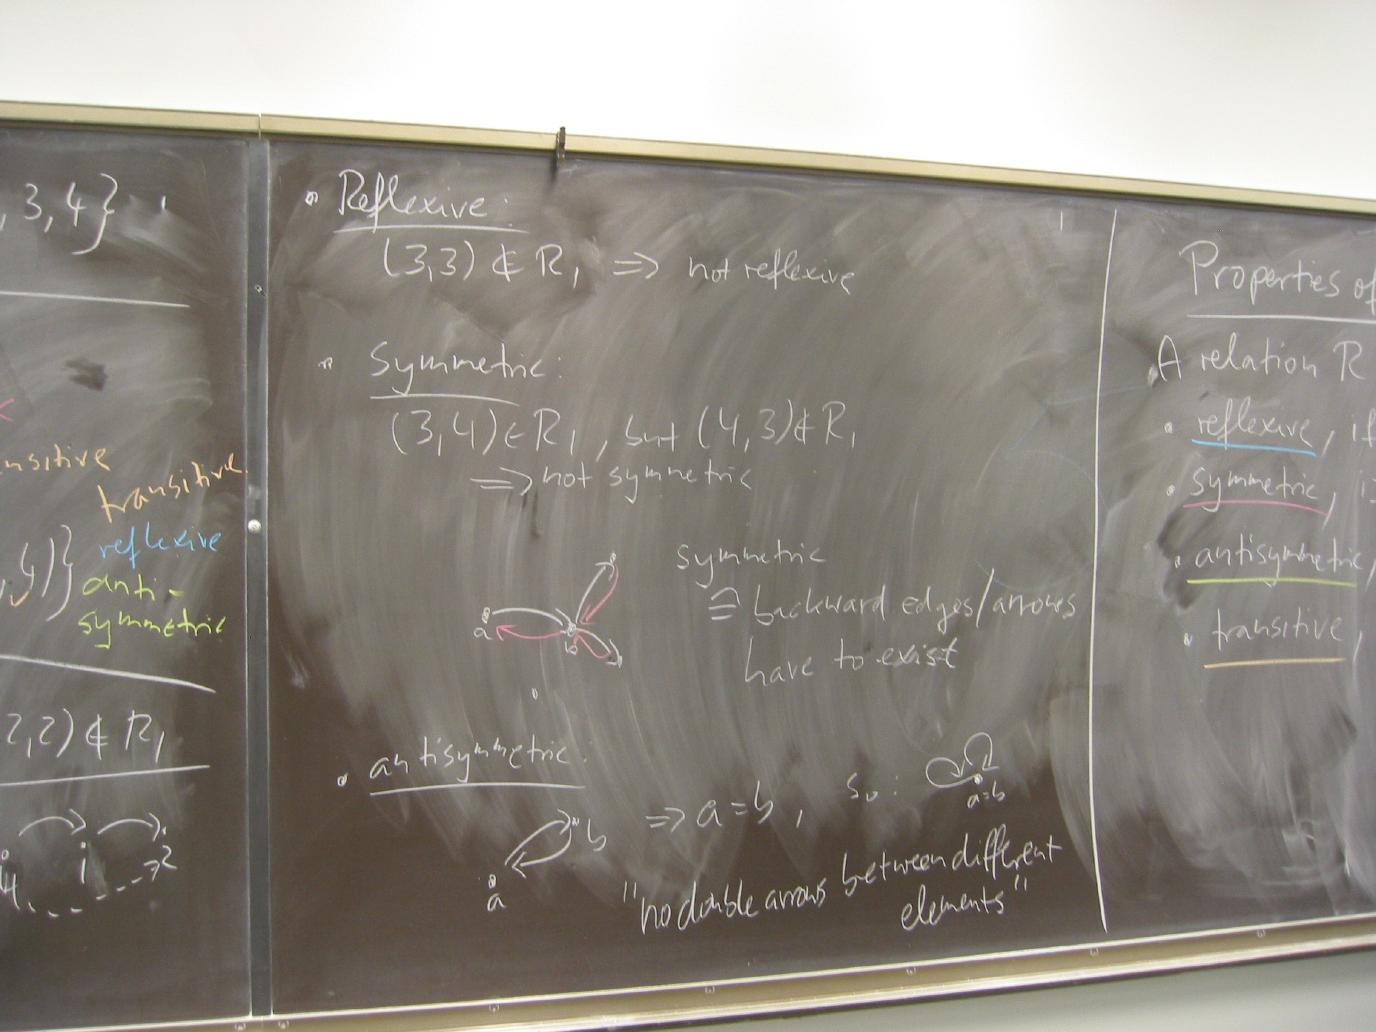 , 3, 4}
nsitive
transitive
,4)} reflexive
anti-
symmetric
2,2) ∉ R₁
i
• Reflexive:
(3,3) ∉ R₁ ⇒ not reflexive
• Symmetric:
(3,4) ∈ R₁, but (4,3) ∉ R₁
⇒ not symmetric
a b
symmetric
≙ backward edges/arrows
have to exist
• antisymmetric:
a b ⇒ a=b, so: a=b
"no double arrows between different
elements"
Properties of
A relation R
• reflexive, if
• symmetric, i
• antisymmetric,
• transitive,